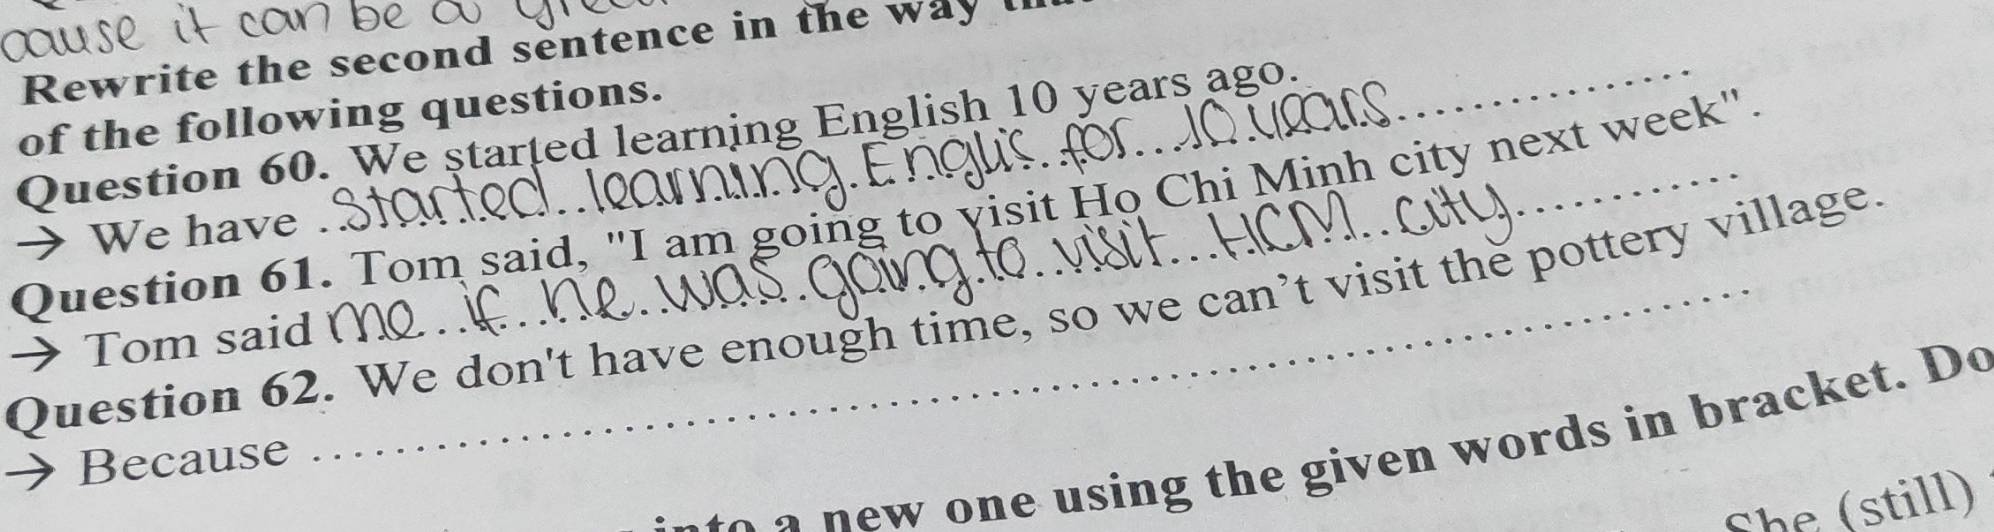 cause it can be a
Rewrite the second sentence in the way
of the following questions.
Question 60. We started learning English 10 years ago.
→ We have ..started..learning.Englis..for...10.years..............
Question 61. Tom said, "I am going to visit Ho Chi Minh city next week".
→ Tom said me...if...he..was..going.to..visit...HCM..city...........
Question 62. We don't have enough time, so we can't visit the pottery village.
→ Because ..........................................................................
into a new one using the given words in bracket. Do
She (still)